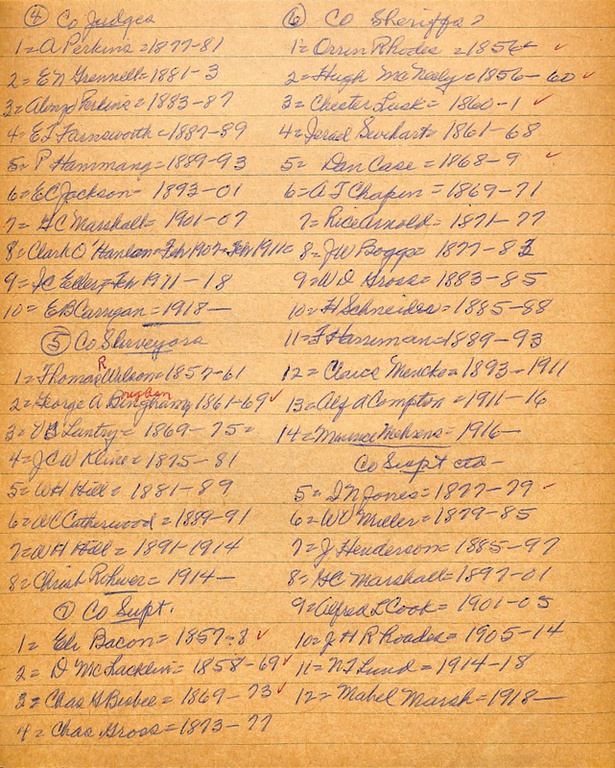 ④ Co Judges
1 = A Perkins = 1877-81
2 = E N Grennell = 1881-3
3 = Alonzo Perkins = 1883-87
4 = E T Farnsworth = 1887-89
5 = P Hammang = 1889-93
6 = E C Jackson = 1893-01
7 = H C Marshall = 1901-07
8 = Clark O'Hanlon = Feb 1907 - Feb 1911
9 = I C Eller = Feb 1911-18
10 = E B Carrigan = 1918-
⑤ Co Surveyors
1 = Thomas R Wilson = 1857-61
2 = George A Bingham 1861-69 ✓
3 = Lantry = 1869-75 =
4 = J C W Kline = 1875-81
5 = W H Hill = 1881-89
6 = W C Catherwood = 1889-91
7 = W H Hill = 1891-1914
8 = Christ Rohwer = 1914-
⑦ Co Supt.
1 = Eli Bacon = 1857-8 ✓
2 = D McLacklin = 1858-69 ✓
3 = Chas G Bisbee = 1869-73 ✓
4 = Chas Gross = 1873-77
⑥ Co Sheriffs
1 = Orrin Rhodes = 1856 ✓
2 = Hugh McNeely = 1856-60 ✓
3 = Chester Lusk = 1860-1 ✓
4 = Jerad = 1861-68
5 = Dan Case = 1868-9 ✓
6 = A T Chapin = 1869-71
7 = Rice Arnold = 1871-77
8 = J W Boggs = 1877-83
9 = W D Gross = 1883-85
10 = H Schneider = 1885-88
11 = F Harriman = 1889-93
12 = Claus Mencke = 1893-1911
13 = Alf A Compton = 1911-16
14 = Maurice Mehrens = 1916-
Co Supt ctd-
5 = D N Jones = 1877-79 ✓
6 = W V Miller = 1879-85
7 = J Henderson = 1885-97
8 = H C Marshall = 1897-01
9 = Alfred L Cook = 1901-05
10 = J H R Rhoades = 1905-14
11 = N T Lund = 1914-18
12 = Mabel Marsh = 1918-